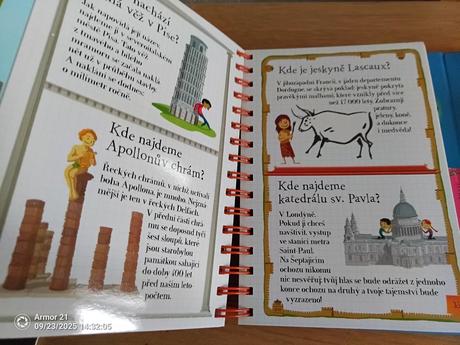 nachází
věž v Pise?
Jak napovídá její název,
najdeme ji v severoitalském
městě Pise. Tato věž
z bílého mramoru se začala naklánět
už v průběhu stavby.
A naklání se dodnes:
o milimetr ročně.
Kde najdeme
Apollonův chrám?
Řeckých chrámů, v nichž uctívali
boha Apollona, je mnoho. Nejzná-
mější je ten v řeckých Delfách.
V přední části chrá-
mu se doposud tyčí
šest sloupů, které
jsou starobylou
památkou sahající
do doby 400 let
před naším leto-
počtem.
Kde je jeskyně Lascaux?
V jihozápadní Francii, v jednom departementu
Dordogne, se skrývá poklad: jeskyně pokrytá
pravěkými malbami, které vznikly před více
než 17 000 lety. Zobrazují
pratury,
jeleny, koně,
a dokonce
i medvěda!
Kde najdeme
katedrálu sv. Pavla?
V Londýně.
Pokud ji chceš
navštívit, vystup
ve stanici metra
Saint-Paul.
Na Šeptajícím
ochozu nikomu
nic nesvěřuj: tvůj hlas se bude odrážet z jednoho
konce ochozu na druhý a tvoje tajemství bude
vyzrazeno!
Armor 21
09/23/2025 14:32:05